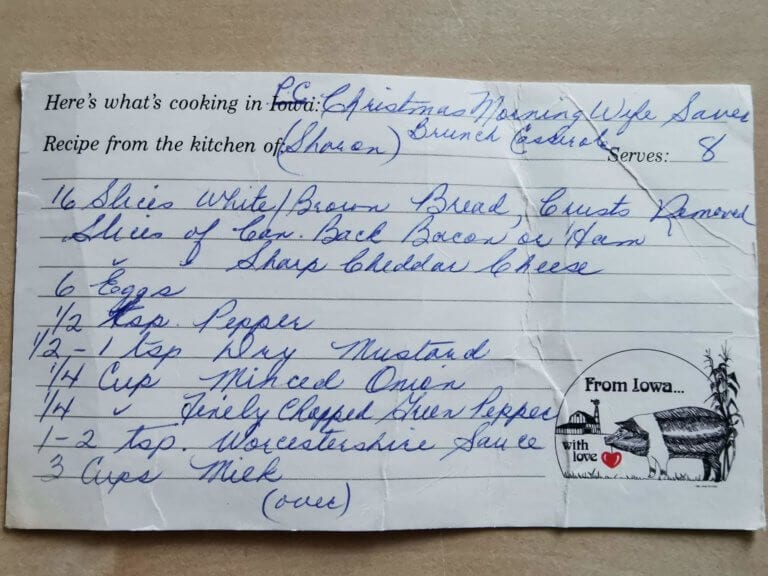 Here's what's cooking in Iowa: P.C. Christmas Morning Wife Saver
Brunch Casserole
Recipe from the kitchen of (Sharon) Serves: 8
16 Slices White/Brown Bread, Crusts Removed
Slices of Can. Back Bacon or Ham
" " Sharp Cheddar Cheese
6 Eggs
1/2 tsp. Pepper
1/2 - 1 tsp Dry Mustard
1/4 Cup Minced Onion
1/4 " Finely Chopped Green Pepper
1-2 tsp. Worcestershire Sauce
3 Cups Milk
(over)
From Iowa...
with
love